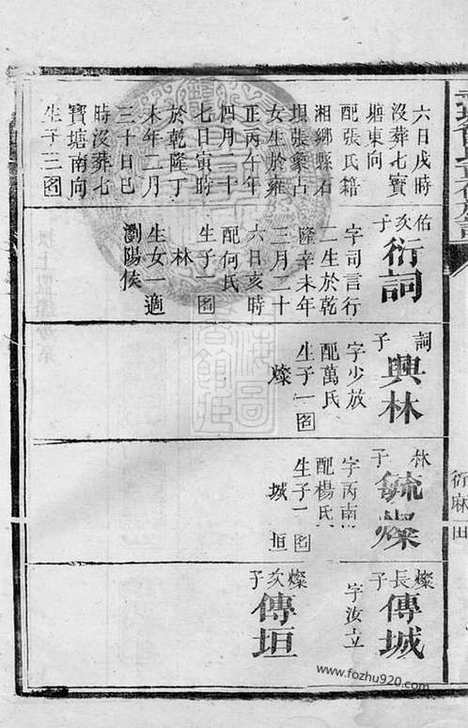 六日戌時
沒葬七寶
塘東向
配張氏籍
湘鄉縣石
壩張蒙古
女生於雍
正丙午年
四月二十
七日寅時
於乾隆丁
未年二月
三十日巳
時沒葬七
寶塘南向
生子三圖
佑次子
衍詞
字司言行
二生於乾
隆辛未年
三月二十
六日亥時
配何氏
生子一圖
林
生女一適
瀏陽侯
詞子
興林
字少放
配萬氏
生子一圖
燦
林子
毓燦
字丙南
配楊氏
生子 圖
城 垣
燦長子
傳城
字汝立
燦次子
傳垣
衍麻田
www.fozhu920.com